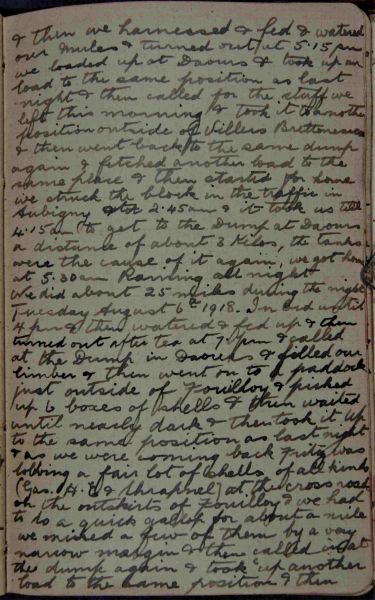 & then we harnessed & fed & watered
our mules & turned out at 5.15 pm
we loaded up at Daours & took up our
load to the same position as last
night & then called for the stuff we
left this morning & took it to another
position outside of Villers Brettoneaux
& then went back to the same dump
again & fetched another load to the
same place & then started for home
we struck the block in the traffic in
Aubigny at 2.45am & it took us till
4.15am to get to the Dump at Daours
a distance of about 3 Kilos, the tanks
were the cause of it again, we got home
at 5.30am Raining all night
We did about 25 miles during the night
Tuesday August 6th 1918. In bed until
4 pm & then watered & fed up & then
turned out after tea at 7 pm & called
at the Dump in Daours & filled our
limber & then went on to a paddock
just outside of Fouilloy & picked
up 6 boxes of shells & then waited
until nearly dark & then took it up
to the same position as last night
& as we were coming back Fritz was
lobbing a fair lot of shells of all kinds
(Gas. H.E & Shrapnel) at the cross roads
on the outskirts of Fouilloy & we had
to do a quick gallop for about a mile
we missed a few of them by a very
narrow margin & then called in at
the dump again & took up another
load to the same position & then